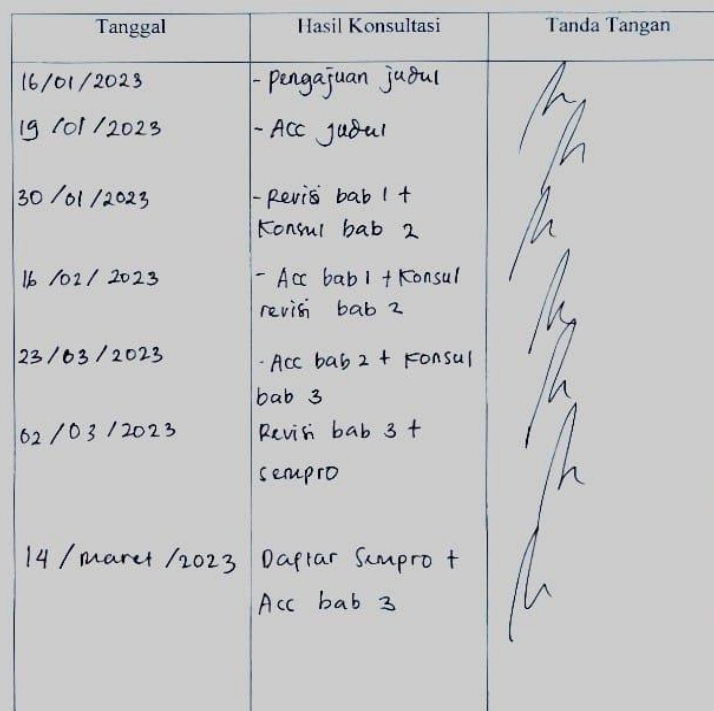 Tanggal Hasil Konsultasi Tanda Tangan
16/01/2023 - Pengajuan judul
19/01/2023 - Acc judul
30/01/2023 - Revisi bab 1 +
Konsul bab 2
16/02/2023 - Acc bab 1 + Konsul
revisi bab 2
23/03/2023 - Acc bab 2 + Konsul
bab 3
02/03/2023 Revisi bab 3 +
sempro
14/Maret/2023 Daftar Sempro +
Acc bab 3